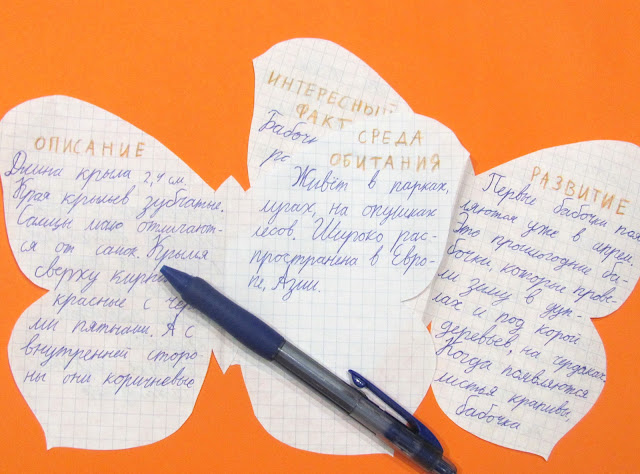 ОПИСАНИЕ
Длина крыла 2,4 см.
Края крыльев зубчатые.
Самцы мало отличают-
ся от самок. Крылья
сверху
красные с
ми пятнами. А с
внутренней сторо-
ны они коричневые
ИНТЕРЕСНЫЙ
ФАКТ
СРЕДА
ОБИТАНИЯ
Живёт в парках,
лугах, на опушках
лесов. Широко рас-
пространена в Евро-
пе, Азии.
РАЗВИТИЕ
Первые бабочки
уже в апреле.
Это прошлогодние ба-
бочки, которые
ли зиму в дуп-
лах и под корой
деревьев, на чердаках.
Когда появляются
листья крапивы,
бабочка